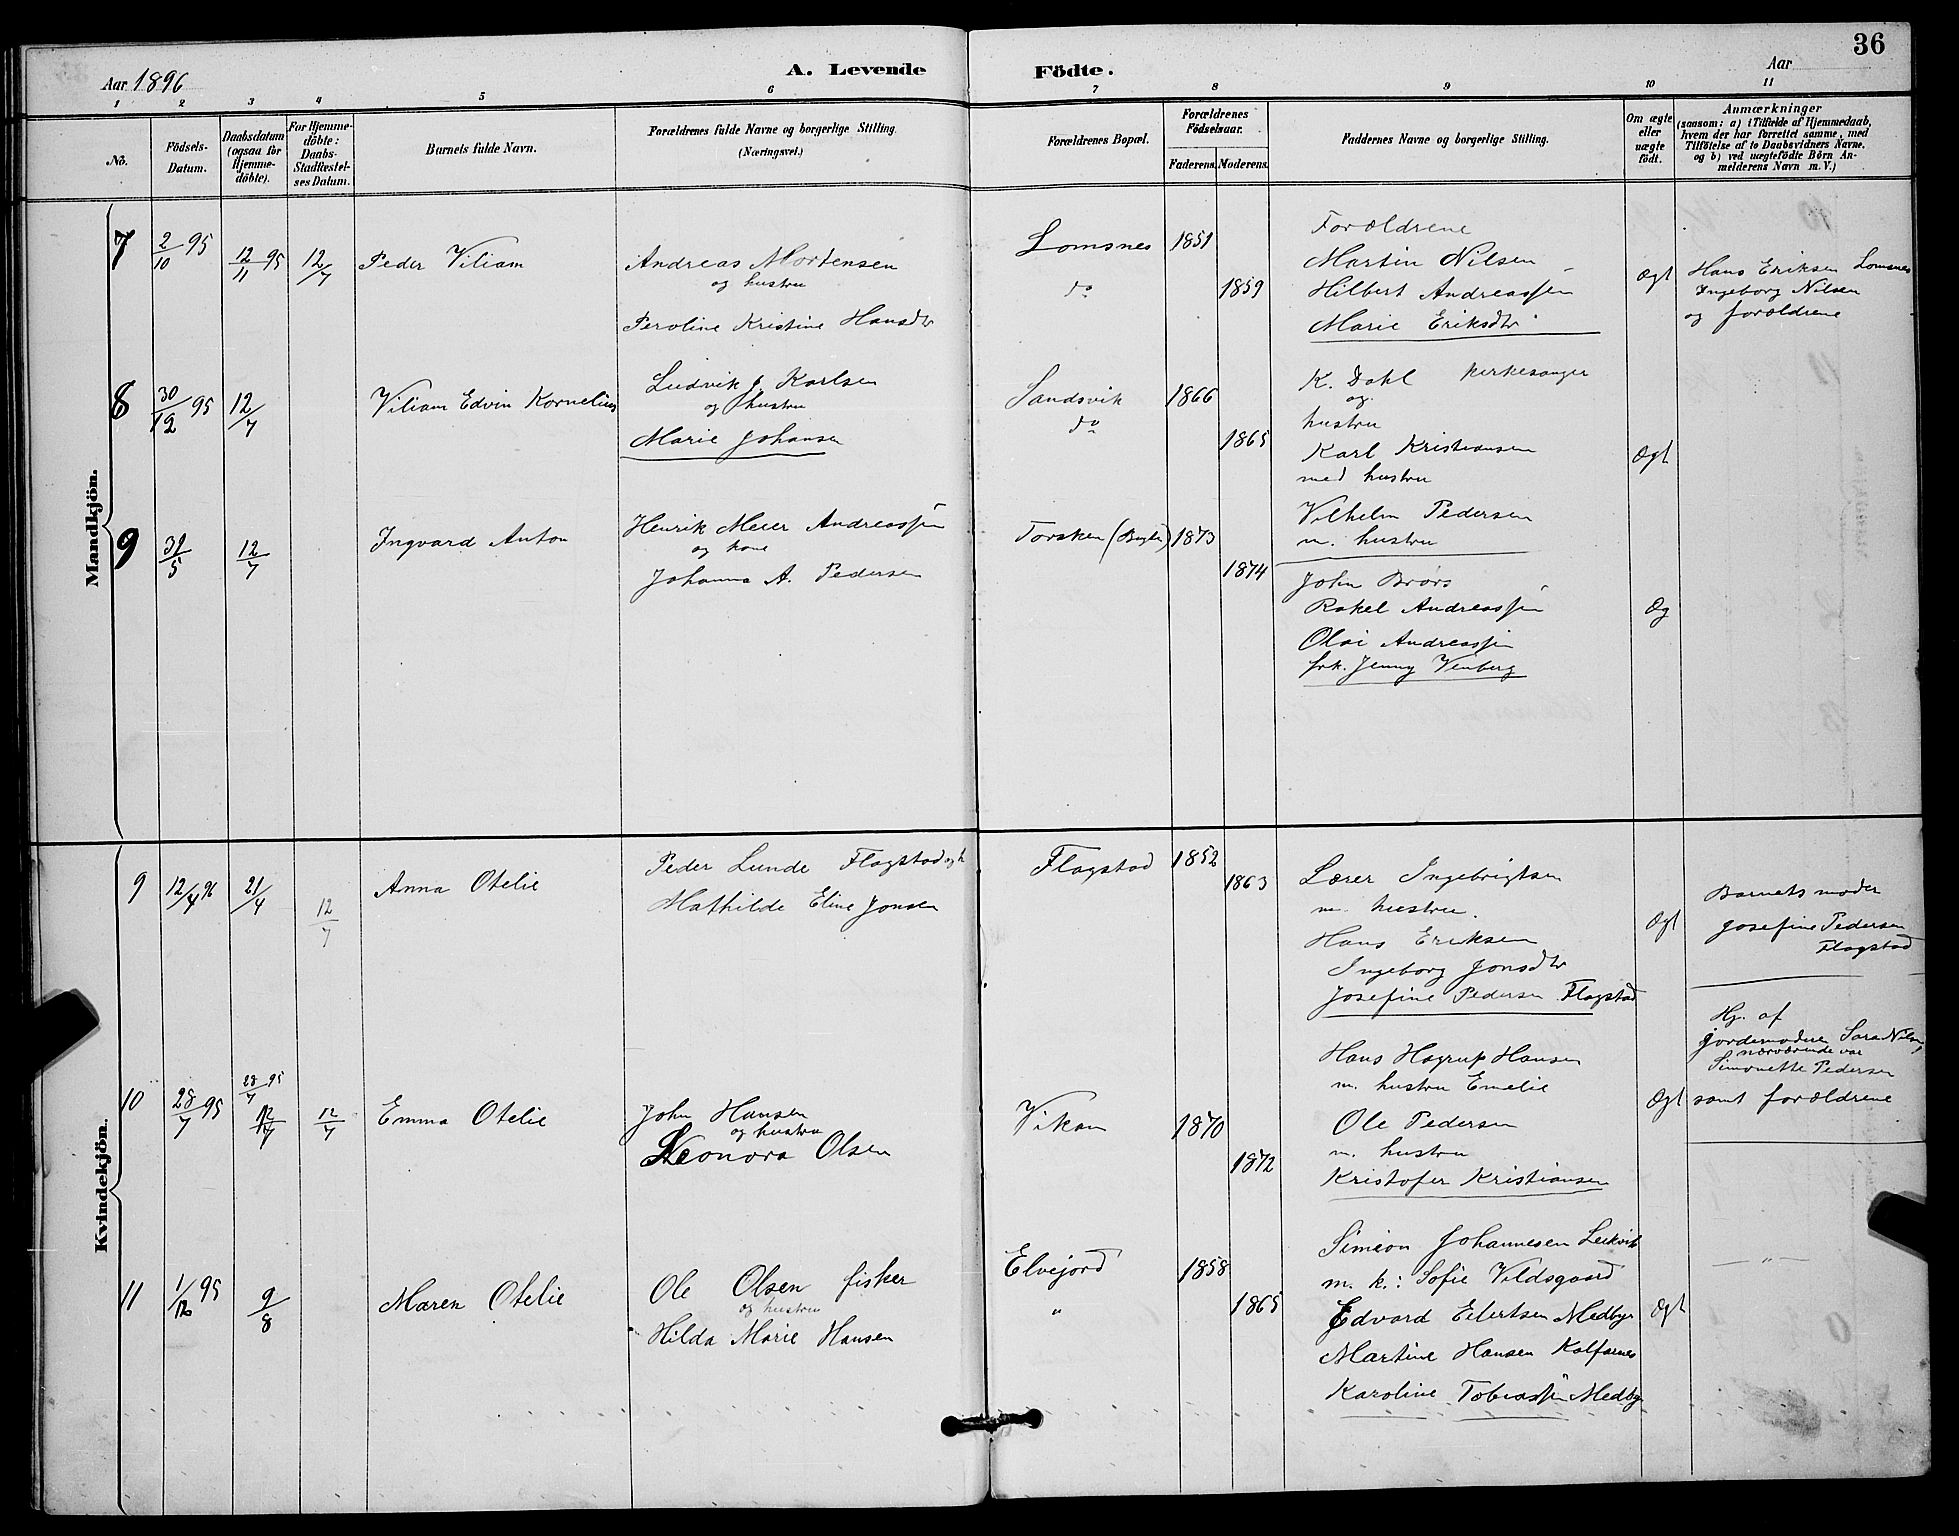 36
Aar 1896
A. Levende Födte.
Aar
1 2 3 4 5 6 7 8 9 10 11
No.
Födsels-Datum.
Daabsdatum (ogsaa for Hjemme-döbte).
For Hjemme-döbte: Daabs-Stadfæstel-ses Datum.
Barnets fulde Navn.
Forældrenes fulde Navne og borgerlige Stilling.
(Næringsvei.)
Forældrenes Bopæl.
Forældrenes Födselsaar.
Faderens. Moderens.
Faddernes Navne og borgerlige Stilling.
Om ægte eller uægte født.
Anmærkninger
(saasom: a) i Tilfælde af Hjemmedaab,
hvem der har forrettet samme, med
Tilföielse af to Daabsvidners Navne.
og b) ved uægtefödte Börn An-
melderens Navn m. V.)
Mandkjön.
7 2/10 95 12/11 95 12/7 Peder Viliam
Andreas Mortensen
og hustru
Peroline Kristine Hansdtr
Lomsnes 1851
do 1859
Forældrene
Martin Nilsen
Hilbert Andreassen
Marie Eriksdtr
Ægt
Hans Eriksen Lomsnes
Ingeborg Nilsen
og forældrene
8 30/12 95 12/7 Viliam Edvin Kornelius
Ludvig J. Karlsen
og hustru
Marie Johansen
Sandsvik 1866
do 1865
K. Dahl kirkesanger
og
hustru
Karl Kristiansen
med hustru
Vilhelm Pedersen
m. hustru
Ægt
9 31/5 12/7 Ingvard Anton
Henrik Meier Andreassen
og kone
Johanna A. Pedersen
Torsken 1873
1874
John Brørs
Rakel Andreassen
Olai Andreassen
frk. Jenny Venberg
Æg
Kvindekjön.
9 12/4 96 21/4 12/7 Anna Otelie
Peder Lunde Flagstad og h
Mathilde Eline Jonsen
Flagstad 1852
1863
Lærer Ingebrigtsen
m. hustru.
Hans Eriksen
Ingeborg Jonsdtr
Josefine Pedersen Flagstad
Ægt
Barnets moder
Josefine Pedersen
Flagstad
10 28/7 95 28/7 95 12/7 12/7 Emma Otelie
John Hansen
og hustru
Leonora Olsen
Vikan 1870
1872
Hans Hagrup Hansen
m. hustru Emelie
Ole Pedersen
m. hustru
Kristofer Kristiansen
Ægt
Hj. af
jordemoder Sara Nilsen,
nærværende var
Simonette Pedersen
samt forældrene
11 1/12 95 9/8 Maren Otelie
Ole Olsen fisker
og hustru
Hilda Marie Hansen
Elvejord 1858
" 1865
Simeon Johannesen Leikvik
m. k.: Sofie Vildsgaard
Edvard Eilertsen Medbyr
Martine Hansen Kalfarnes
Karoline Tobiassen Medby
Ægt
— " —